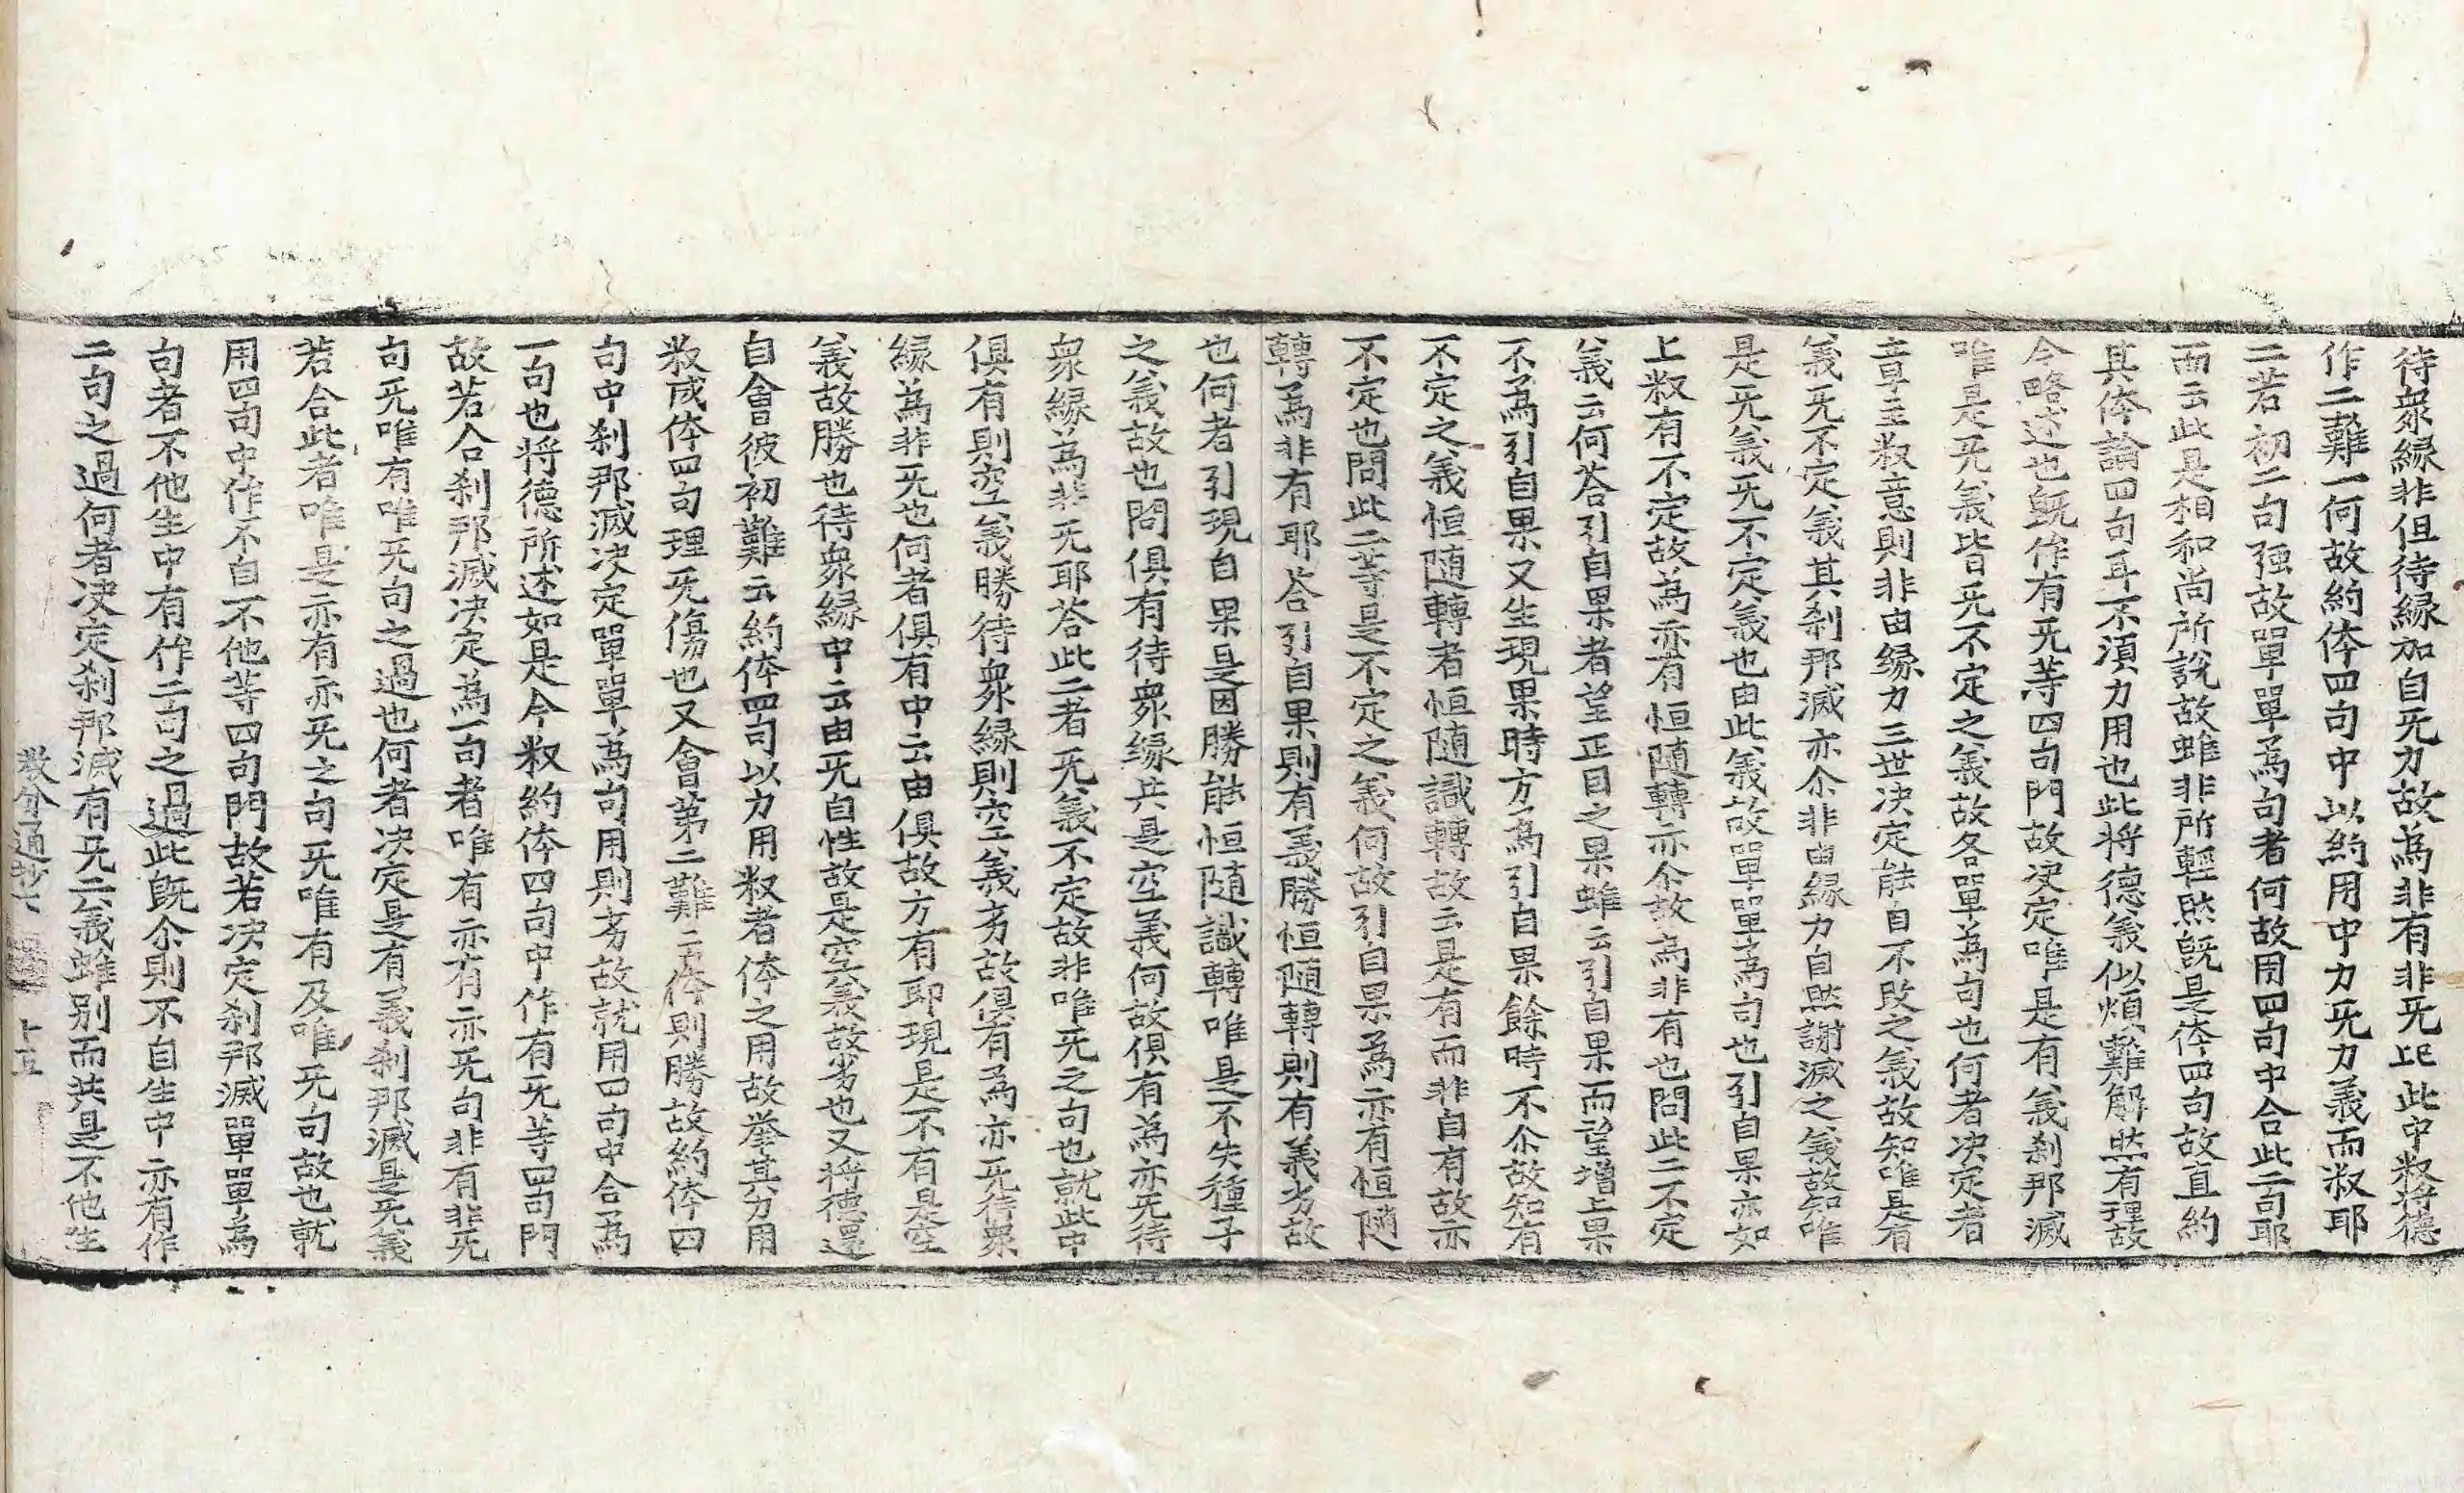 待衆縁非但待縁加自旡力故為非有非旡此此中釈将德
作二難一何故約体四句中以約用中力旡力義而釈耶
二若初二句强故單單為句者何故用四句中合此二句耶
而云此是相和尚所說故雖非所輕然旣是体四句故直約
其体論四句耳不湏力用也此将德義似煩難解然有理故
今略述也旣作有旡等四句門故决定唯是有義刹那滅
唯是旡義皆旡不定之義故各單為句也何者决定者
章主釈意則非由縁力三世决定能自不改之義故知唯是有
義旡不定義其刹那滅亦尒非由縁力自然謝滅之義故知唯
是旡義旡不定義也由此義故單單為句也引自果亦如
上釈有不定故為亦有恒随轉亦尒故為非有也問此二不定
義云何荅引自果者望正因之果雖云引自果而望增上果
不為引自果又生現果時方為引自果餘時不尒故知有
不定之義恒随轉者恒随識轉故云是有而非自有故亦
不定也問此二等是不定之義何故引自果為亦有恒隨
轉為非有耶荅引自果則有義勝恒随轉則有義劣故
也何者引現自果是因勝能恒随識轉唯是不失種子
之義故也問俱有待衆縁共是空義何故俱有為亦旡待
衆縁為非旡耶荅此二者旡義不定故非唯旡之句也就此中
俱有則空義勝待衆縁則空義劣故俱有為亦旡待衆
縁為非旡也何者俱有中云由俱故方有耶現是不有是空
義故勝也待衆縁中云由旡自性故是空義故劣也又将德還
自會彼初難云約体四句以力用釈者体之用故举其力用
釈成体四句理旡傷也又會第二難云体則勝故約体四
句中刹那滅决定單單為句用則劣故就用四句中合為
一句也将德所述如是今釈約体四句中作有旡等四句門
故若合刹那滅决定為一句者唯有亦有亦旡句非有非旡
句旡唯有唯旡句之過也何者决定是有義刹那滅是旡義
若合此者唯是亦有亦旡之句旡唯有及唯旡句故也就
用四句中作不自不他等四句門故若决定刹那滅單單為
句者不他生中有作二句之過此旣尒則不自生中亦有作
二句之過何者决定刹那滅有旡二義雖别而共是不他生
教分通抄七 十五